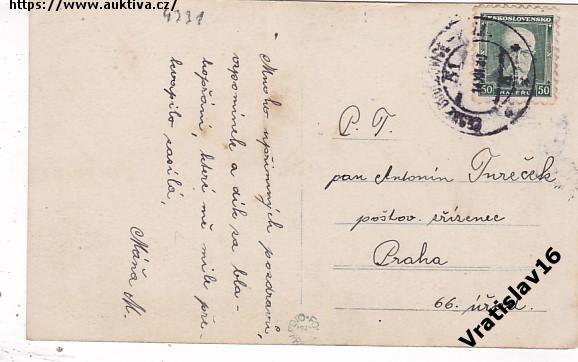 https://www.auktiva.cz/
4331
Mnoho upřímných pozdravů,
vzpomínek a dík za bla-
hopřání, které mě mile pře-
kvapilo zasílá,
Máňa M.
ČESKOSLOVENSKO
50 HALÉŘŮ 50
P. T.
pan Antonín Tureček,
poštov. zřízenec
Praha
66. úřad.
Vratislav16